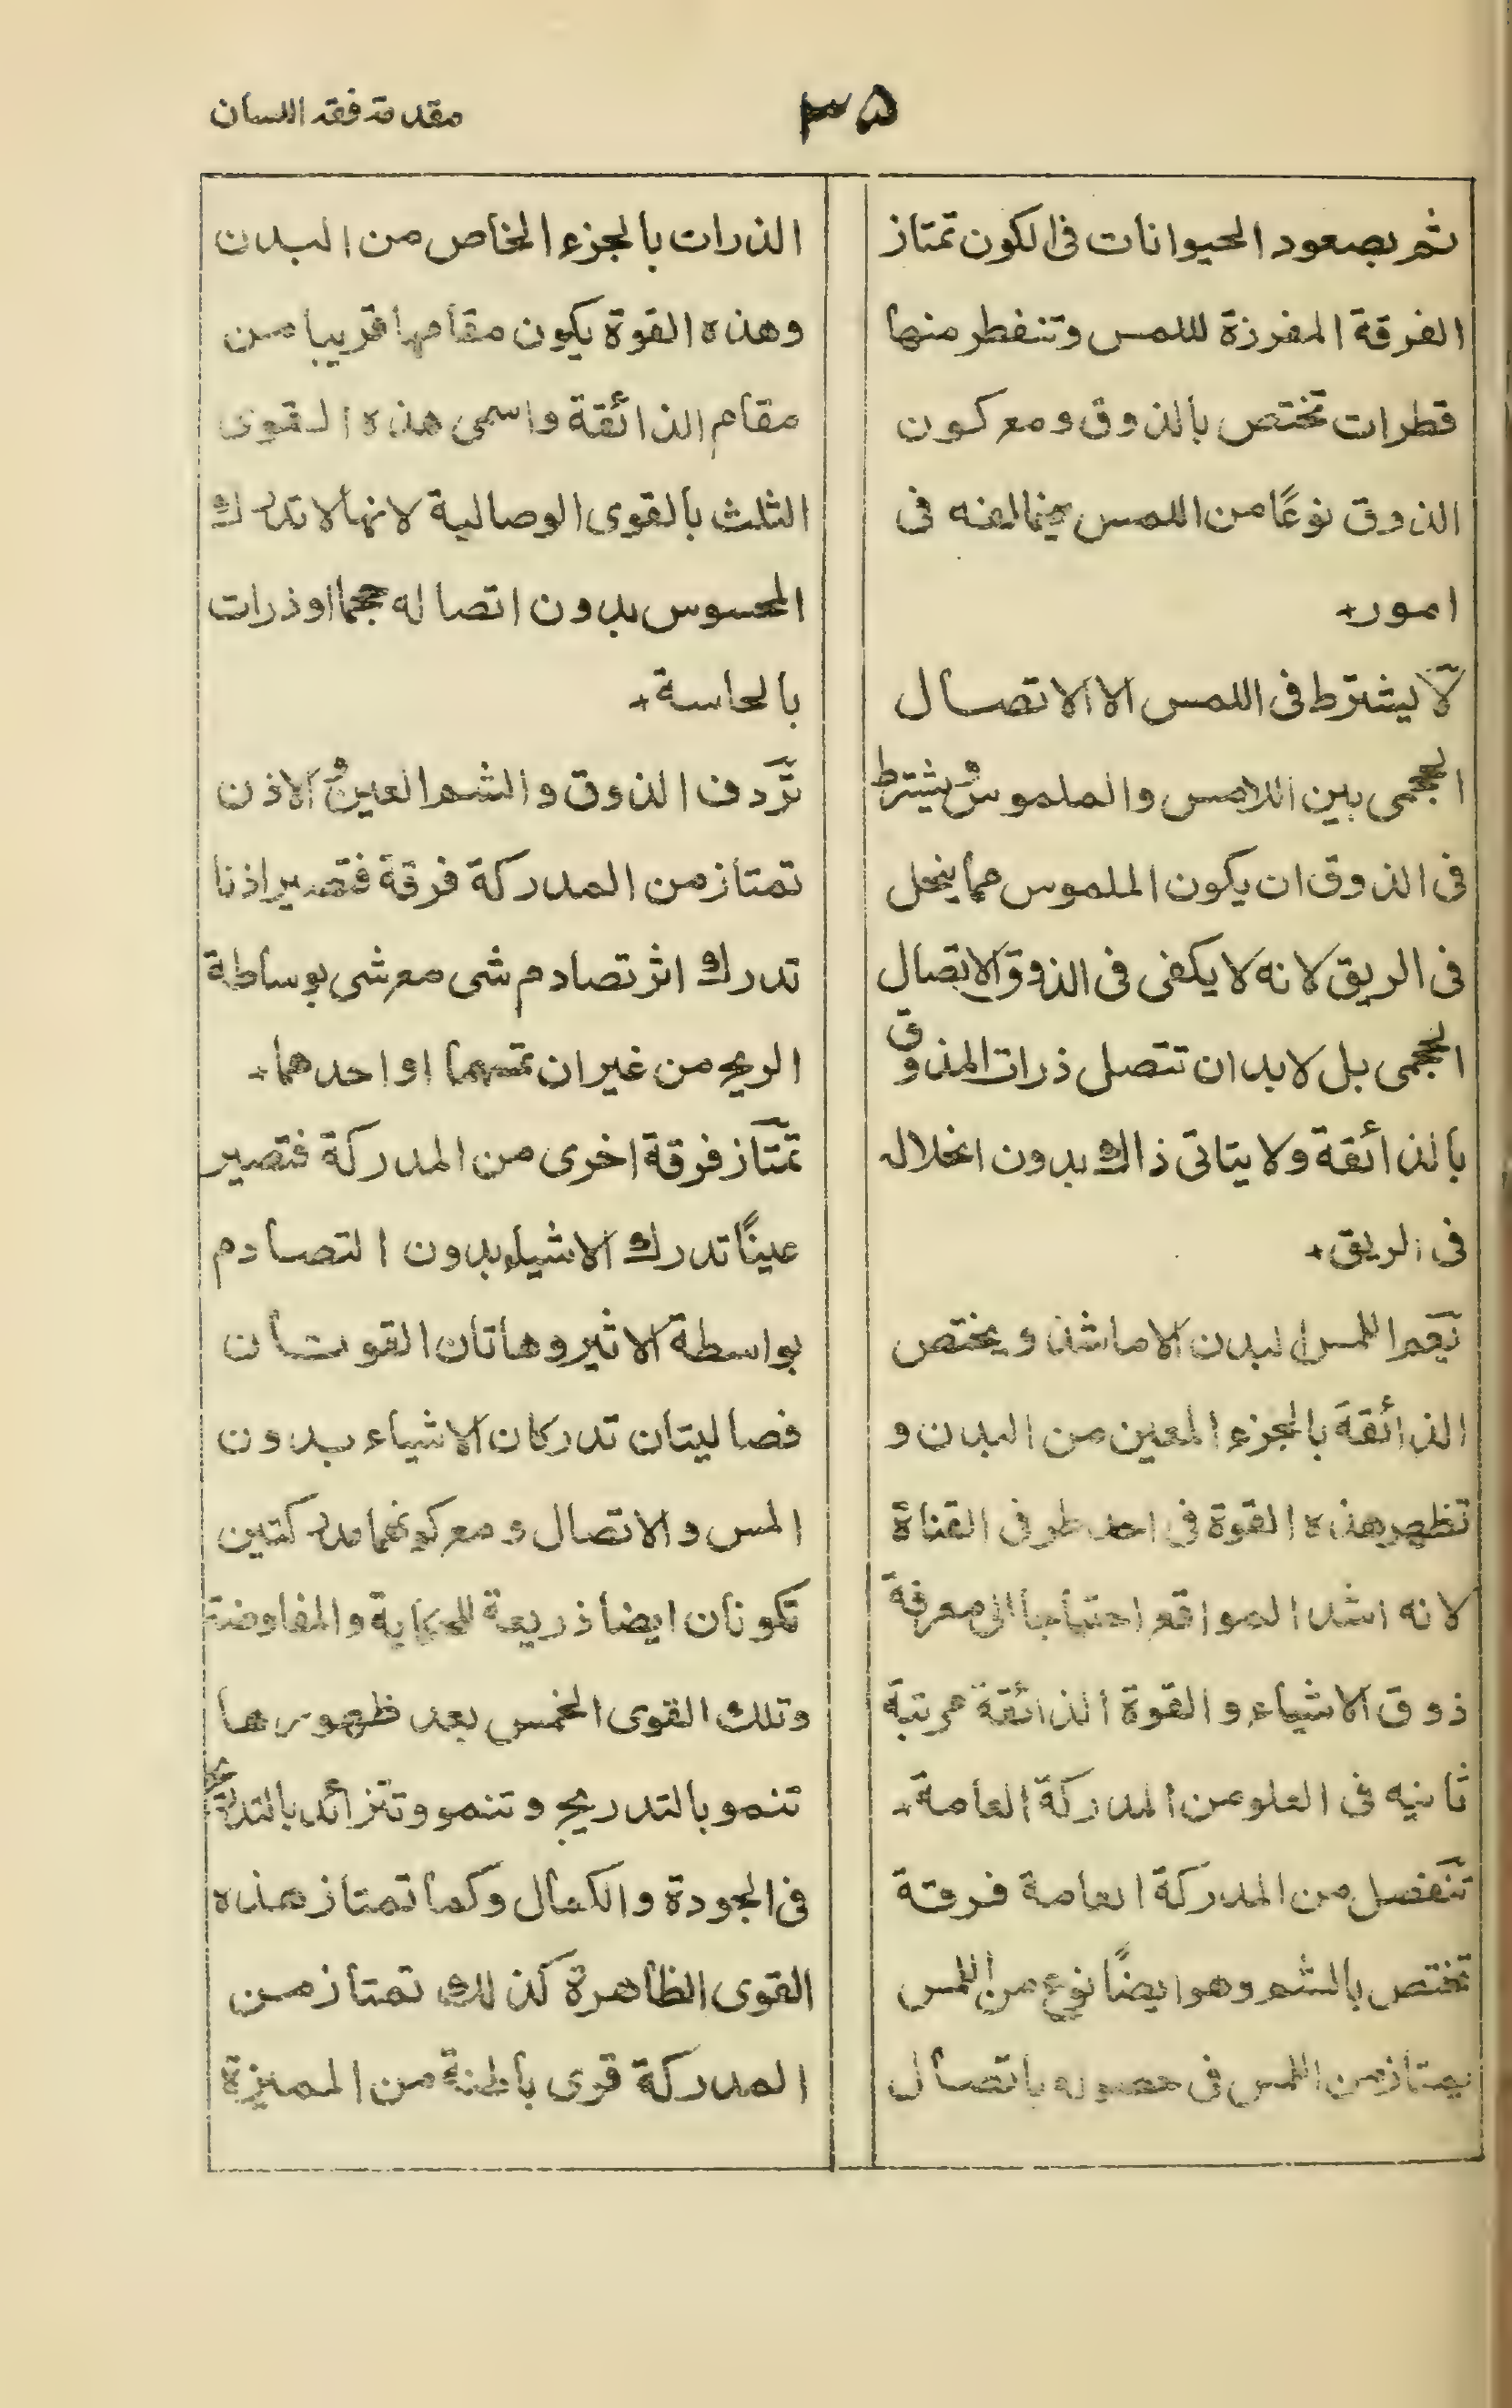 مقدمة فقه اللسان
۳۵
ثم بصعود الحيوانات فى الكون تمتاز
الفرقة المفرزة للمس وتنفطر منها
قطرات تختص بالذوق ومع كون
الذوق نوعًا من اللمس يخالفه فى
امور+
لا يشترط فى اللمس الا الاتصال
الحجمى بين اللامس والملموس و يشترط
فى الذوق ان يكون الملموس مما ينحل
فى الريق لانه لا يكفى فى الذوق الاتصال
الحجمى بل لابد ان تتصل ذرات المذوق
بالذائقة ولا يتاتى ذالك بدون انحلاله
فى الريق+
يعم اللمس البدن الا ماشذ و يختص
الذائقة بالجزء المعين من البدن و
تظهر هذه القوة فى احد طرفى القناة
لانه اشد المواقع احتياجا الى معرفة
ذوق الاشياء و القوة الذائقة مرتبة
ثانيه فى العلو من المدركة العامة+
تنفصل من المدركة العامة فرقة
تختص بالشم وهو ايضًا نوع من اللمس
يمتاز من اللمس فى حصوله باتصال
الذرات بالجزء الخاص من البدن
وهذه القوة يكون مقامها قريبا من
مقام الذائقة واسمى هذه القوى
الثلث بالقوى الوصالية لانها لا تدرك
المحسوس بدون اتصاله حجما او ذرات
بالحاسة+
تردف الذوق و الشم العين و الاذن
تمتاز من المدركة فرقة فتصير اذنا
تدرك اثر تصادم شى مع شى بوساطة
الريح من غير ان تمسهما او احدهما+
تمتاز فرقة اخرى من المدركة فتصير
عينًا تدرك الاشياء بدون التصادم
بواسطة الاثير وهاتان القوتان
فصاليتان تدركان الاشياء بدون
المس و الاتصال و مع كونهما مدركتين
تكونان ايضا ذريعة للحكاية والمفاوضة
وتلك القوى الخمس بعد ظهورها
تنمو بالتدريج و تنمو وتتزائد بالتدريج
فى الجودة و الكمال وكما تمتاز هذه
القوى الظاهرة كذلك تمتاز من
المدركة قوى باطنة من المميزة